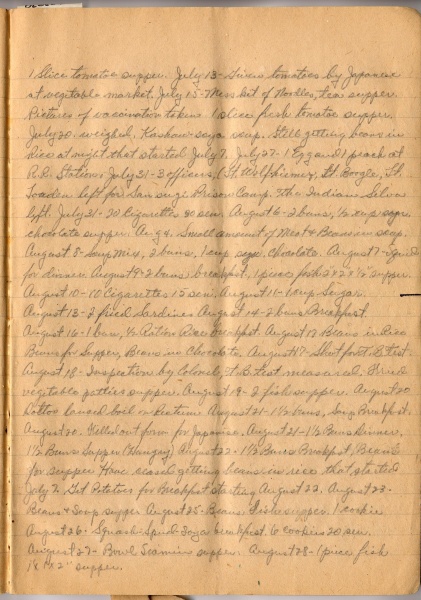 1 Slice tomatoe supper. July 13 - Given tomatoes by Japanese
at vegetable market. July 15 - Mess kit of Noodles, tea supper.
Pictures of vaccination taken. 1 slice fresh tomatoe supper.
July 20 - weighed. Soya soup. Still getting beans in
Rice at night that started July 7. July 27 - 1 Egg and 1 peach at
R.R. Station. July 31 - 3 officers, Lt. Lt. Boogle, Lt.
left for Prison Camp. The Indian Silva
left. July 31 - 20 Cigarettes 30 sen. August 6 - 2 buns, 1/2 cup
chocolate supper. Aug 4. Small amount of Meat & Beans in soup.
August 8 - Soup Mix, 2 buns, 1 cup Chocolate. August 7 - Squid
for dinner. August 9 - 2 buns breakfast, 1 piece 2 x 2 x 1/2 supper.
August 10 - 10 Cigarettes 15 sen. August 11 - 1 cup Sugar.
August 13 - 2 fried Sardines August 14 - 2 buns Breakfast.
August 16 - 1 bun, 1/2 Ration Rice breakfast. August 17 Beans in Rice
Beans for Supper, Beans in Chocolate. August 17 - Short
August 18 - Inspection by Colonel, measured. Fried
vegetable patties supper. August 19 - 2 fish supper. August 20
Doctor lanced boil August 21 - 1 1/2 buns, Soup Breakfast.
August 20. Filled out form for Japanese. August 21 - 1 1/2 Buns Dinner.
1 1/2 Buns Supper (Hungry) August 22 - 1 1/2 Buns Breakfast, Beans
for supper getting beans in rice that started
July 7. Got Potatoes for Breakfast starting August 22. August 23 -
Beans & Soup supper August 25 - Beans, Fish supper. 1 cookie
August 26 - Squash Spud Soya breakfast. 6 cookies 20 sen.
August 27 - Bowl supper. August 28 - 1 piece fish
supper.